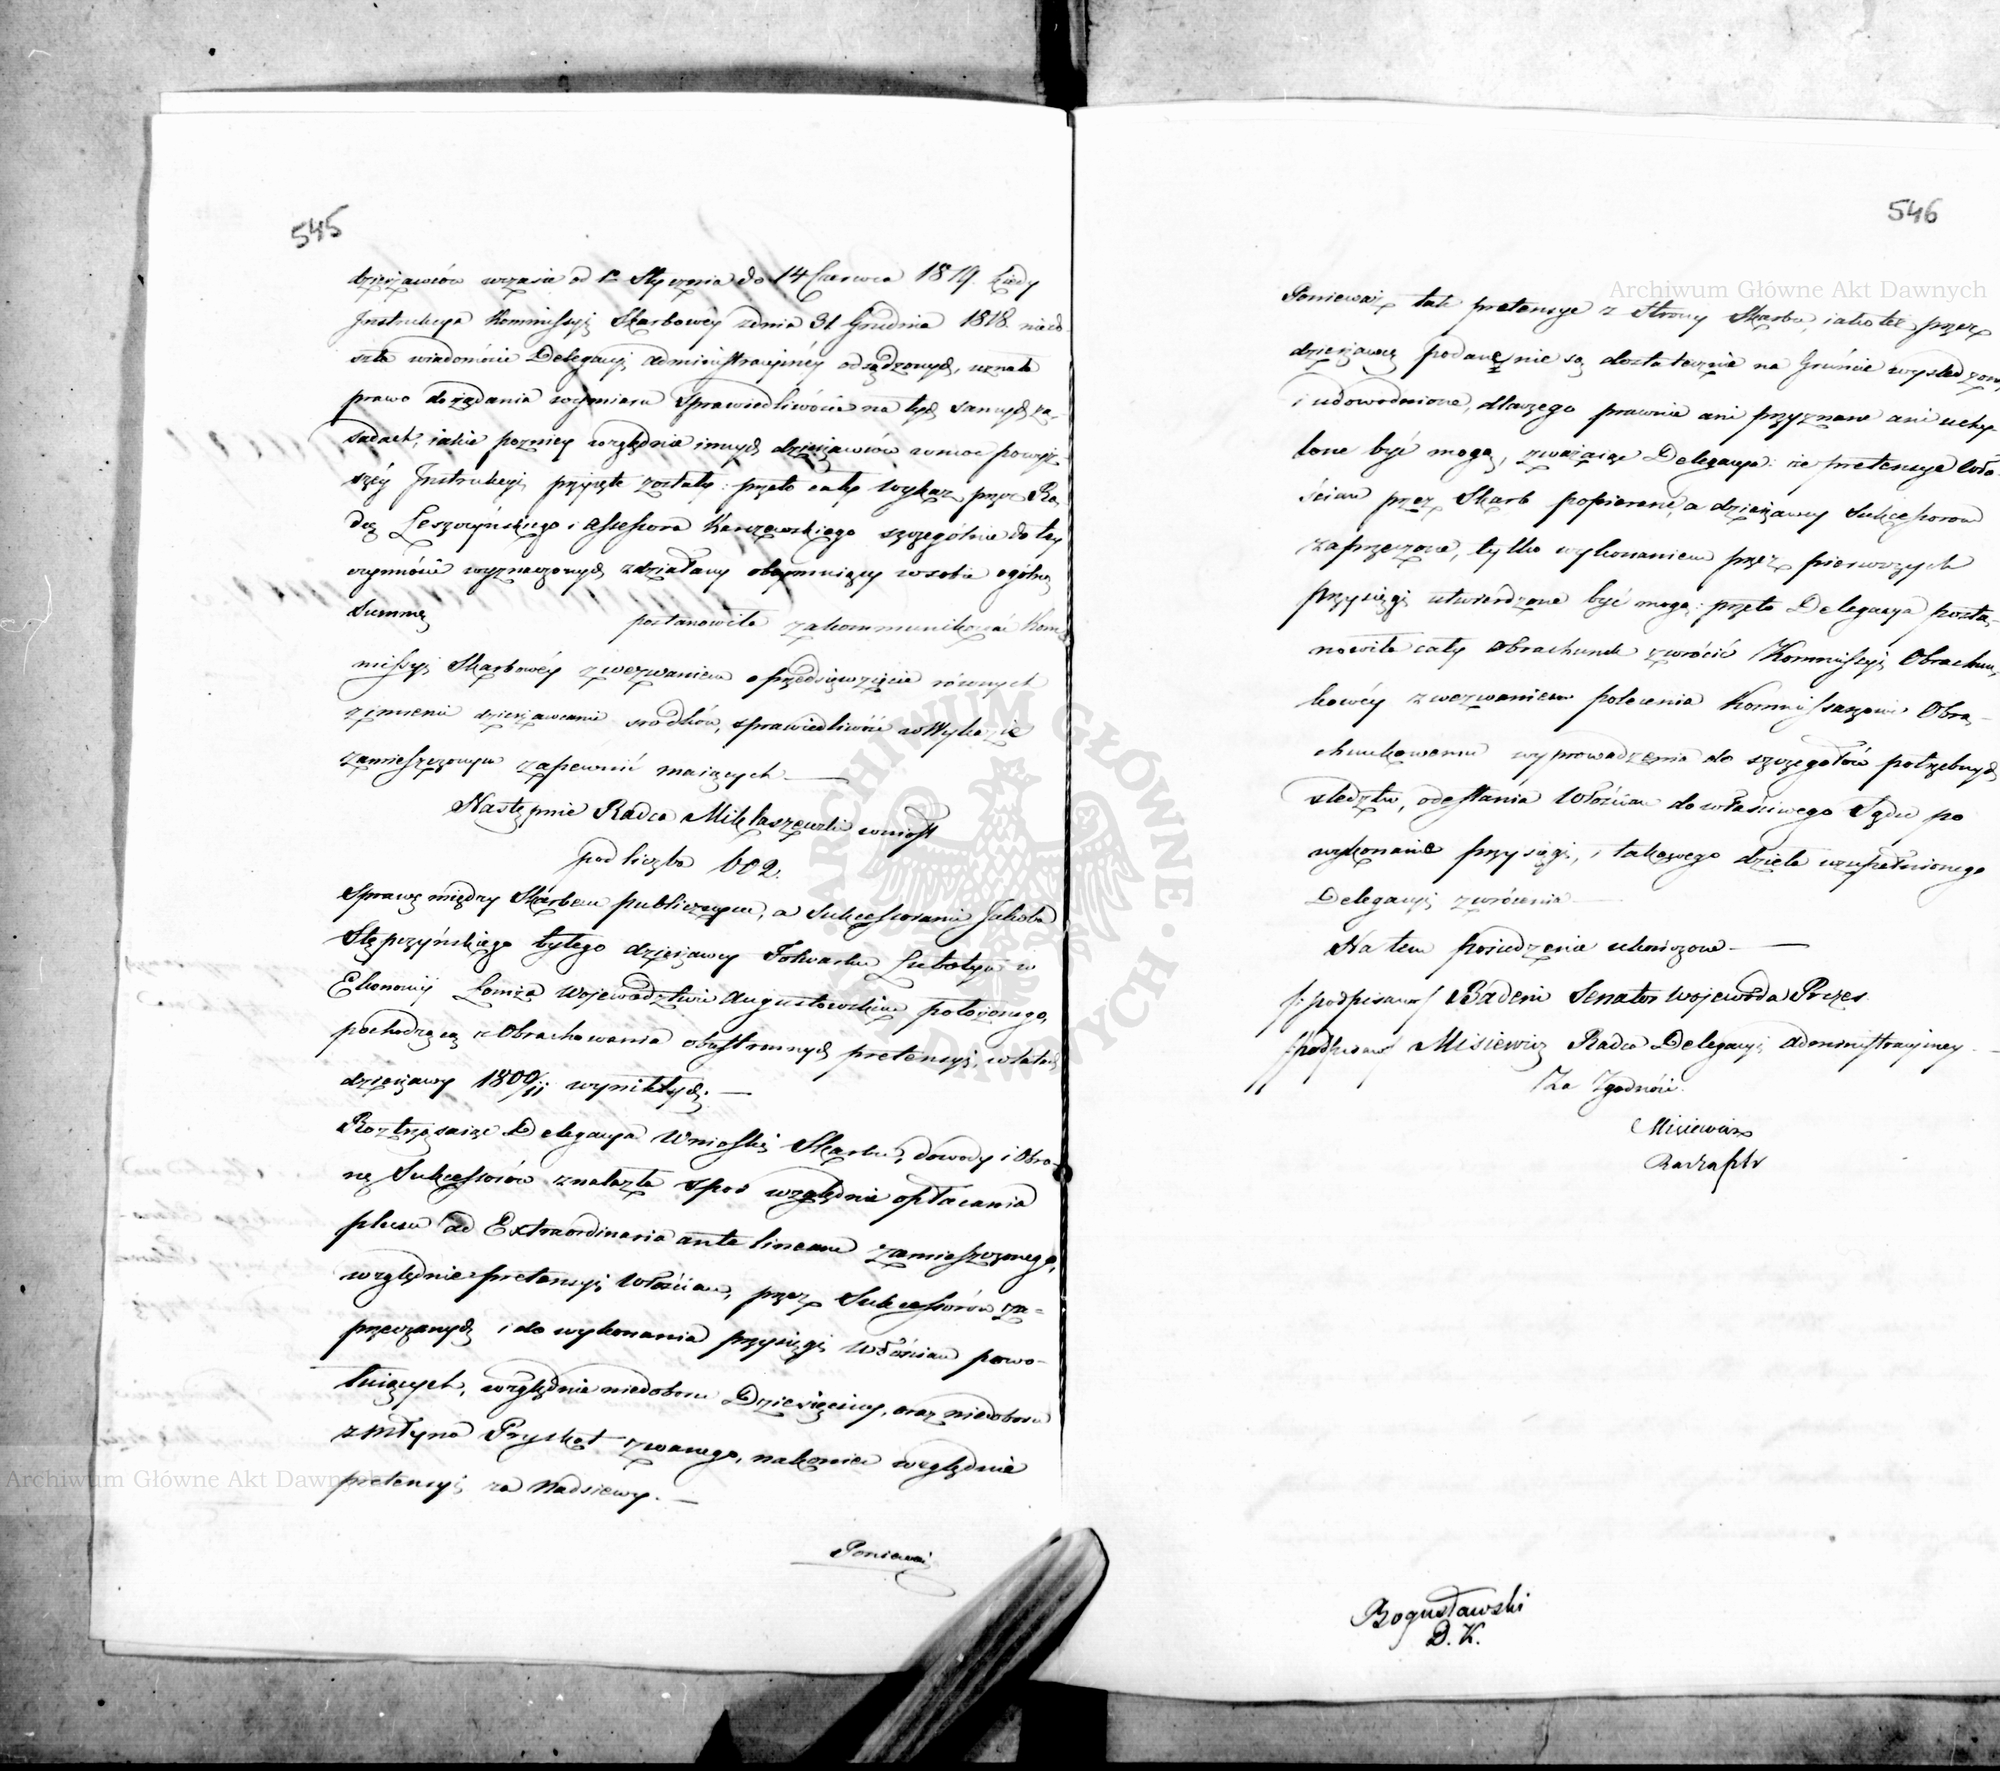 545
dzierżawców w czasie od 1o Stycznia do 14 Czerwca 1819. kiedy
Instrukcya Kommissyi Skarbowéy z dnia 31 Grudnia 1818. niedo-
szła wiadomości Delegacyi Administracyinéy odsądzonych, uznała
prawo do żądania wymiaru sprawiedliwości na tych samych za-
sadach, iakie poźniey względnie innych dzierżawców w moc powyż-
széy Instrukcyi przyięte zostały: przeto cały wykaz przez Ra-
dcę Leszczyńskiego i Assessora Karczewskiego szczególnie do tey
czynności wyznaczonych zdziałany obeymuiący w sobie ogólną
Summę postanowiła zakommunikować Kom-
missyi Skarbowéy z wezwaniem o przedsięwzięcie równych
z innemi dzierżawcami srodków, sprawiedliwość w Wykazie
zamieszczonym zapewnić maiących
Następnie Radca Miklaszewski wniosł
pod liczbą 602.
Sprawę między Skarbem publicznym, a Sukcessorami Jakoba
Stępczyńskiego byłego dzierżawcy Folwarku Lubotyń w
Ekonomii Łomża Województwie Augustowskim położonego,
pochodzącą z Obrachowania obustronnych pretensyi, w latach
dzierżawy 1809/11 wynikłych.
Roztrząsaiąc Delegacya Wnioski Skarbu, dowody i obro-
nę Sukcessorów znalazła spór względnie opłacania
plusu ad Extraordinaria ante lineam zamieszczonego,
względnie pretensyi Włościan, przez Sukcessorów za-
przeczanych i do wykonania przysięgi Włościan powo-
łuiących, względnie niedoboru Dziesięciny, oraz niedoboru
z Młyna Pryskał zwanego, nakoniec względnie
pretensyi za Nadsiewy.
Ponieważ
546
Ponieważ tak pretensye z Strony Skarbu, iako też przez
dzierżawcę podane nie są dostatecznie na Gruncie wysledzone,
i udowodnione, dlaczego prawnie ani przyznane ani uchy-
lone być mogą, zważaiąc Delegacya: że pretensye Wło-
ścian przez Skarb popierane, a dzierżawcy Sukcessorów
zaprzeczone, tylko wykonaniem przez pierwszych
przysięgi utwierdzone być mogą: przeto Delegacya posta-
nowiła cały obrachunek zwrócić Kommissyi Obrachun-
kowéy z wezwaniem polecenia Kommissarzowi Obra-
chunkowemu wyprowadzenia do szczegołów potrzebnych
sledztw, odesłania Włościan do właściwego Sądu po
wykonanie przysięgi, i takowego dzieła uzupełnionego
Delegacyi zwrócenia
Na tem posiedzenie ukończone
/:podpisano/ Badeni Senator Wojewoda Prezes
/:podpisano/ Misiewicz Radca Delegacyi Administracyiney
Za Zgodność
Misiewicz
Bogusławski
D. K.
Archiwum Główne Akt Dawnych
Archiwum Główne Akt Dawnych
ARCHIWUM GŁÓWNE AKT DAWNYCH